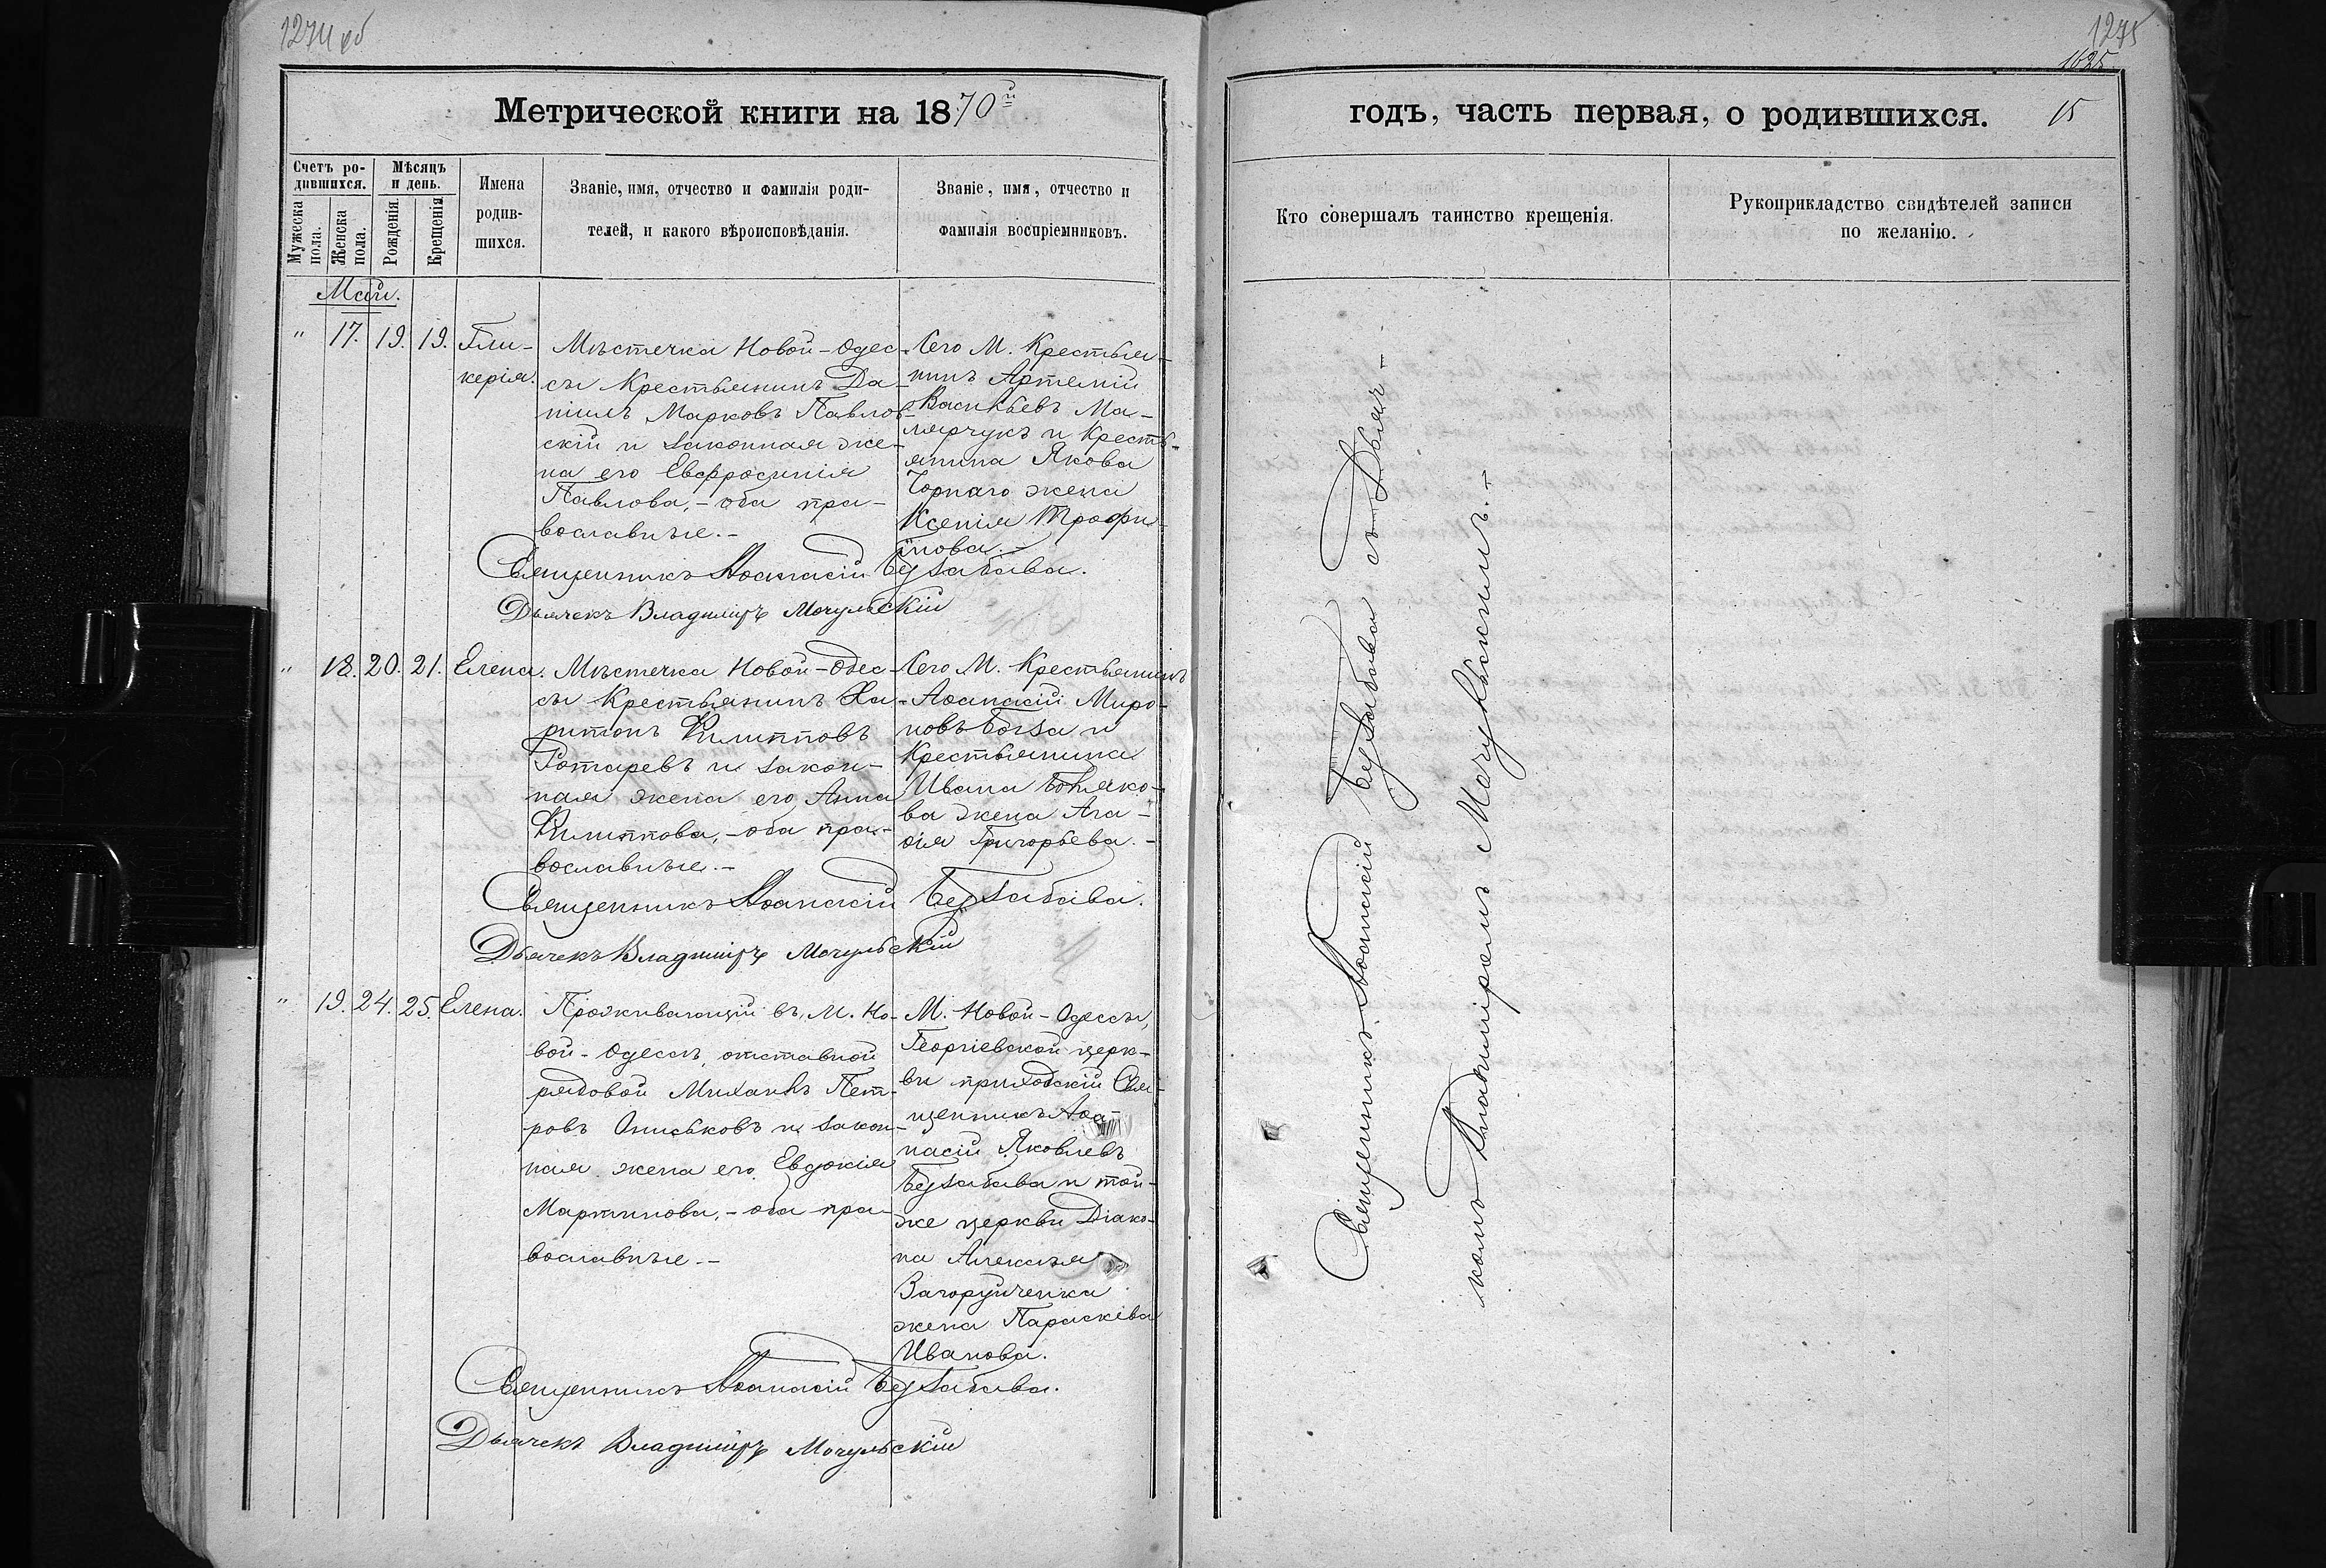 1274 об
Метрической книги на 1870й
Счетъ ро-
дившихся.
Мѣсяцъ
и день.
Имена
родив-
шихся.
Званіе, имя, отчество и фамилія роди-
телей, и какого вѣроисповѣданія.
Званіе, имя, отчество и
фамилія воспріемниковъ.
Мужеска
пола.
Женска
пола.
Рожденія.
Крещенія.
Май.
" 17. 19. 19. Гли-
керія.
Мѣстечка Новой-Одес-
сы Крестьянинъ Да-
ніилъ Марковъ Павлов-
скій и законная же-
на его Евфросинія
Павлова,- оба пра-
вославные.-
Сего М. Крестья-
нинъ Артемій
Васильевъ Ма-
лярчукъ и Кресть-
янина Якова
Чорнаго жена
Ксенія Трофи-
мова.-
Священникъ Аѳанасій Бузабава.
Дьячекъ Владиміръ Мочульскій
" 18. 20. 21. Елена.
Мѣстечка Новой-Одес-
сы Крестьянинъ Ха-
ритонъ Филипповъ
Ротаревъ и закон-
ная жена его Анна
Филиппова,- оба пра-
вославные.-
Сего М. Крестьянинъ
Аѳанасій Миро-
новъ Богза и
Крестьянина
Ивана
жена Ага-
ѳія Григорьева.-
Священникъ Аѳанасій Бузабава.
Дьячекъ Владиміръ Мочульскій
" 19. 24. 25. Елена.
Проживающій въ М. Но-
вой-Одессѣ, отставной
рядовой Михаилъ Пет-
ровъ Ониськовъ и закон-
ная жена его Евдокія
Мартинова,- оба пра-
вославные.-
М. Новой-Одессы,
Георгіевской церк-
ви приходскій Свя-
щенникъ Аѳа-
насій Яковлевъ
Бузабава и той-
же церкви Діако-
на Алексѣя
Загоруйченка
жена Параскева
Иванова.
Священникъ Аѳанасій Бузабава.
Дьячекъ Владиміръ Мочульскій
1275
1625
годъ, часть первая, о родившихся. 15
Кто совершалъ таинство крещенія.
Рукоприкладство свидѣтелей записи
по желанію.
Священникъ Аѳанасій Бузабава съ Дьяч-
комъ Владиміромъ Мочульскимъ.-